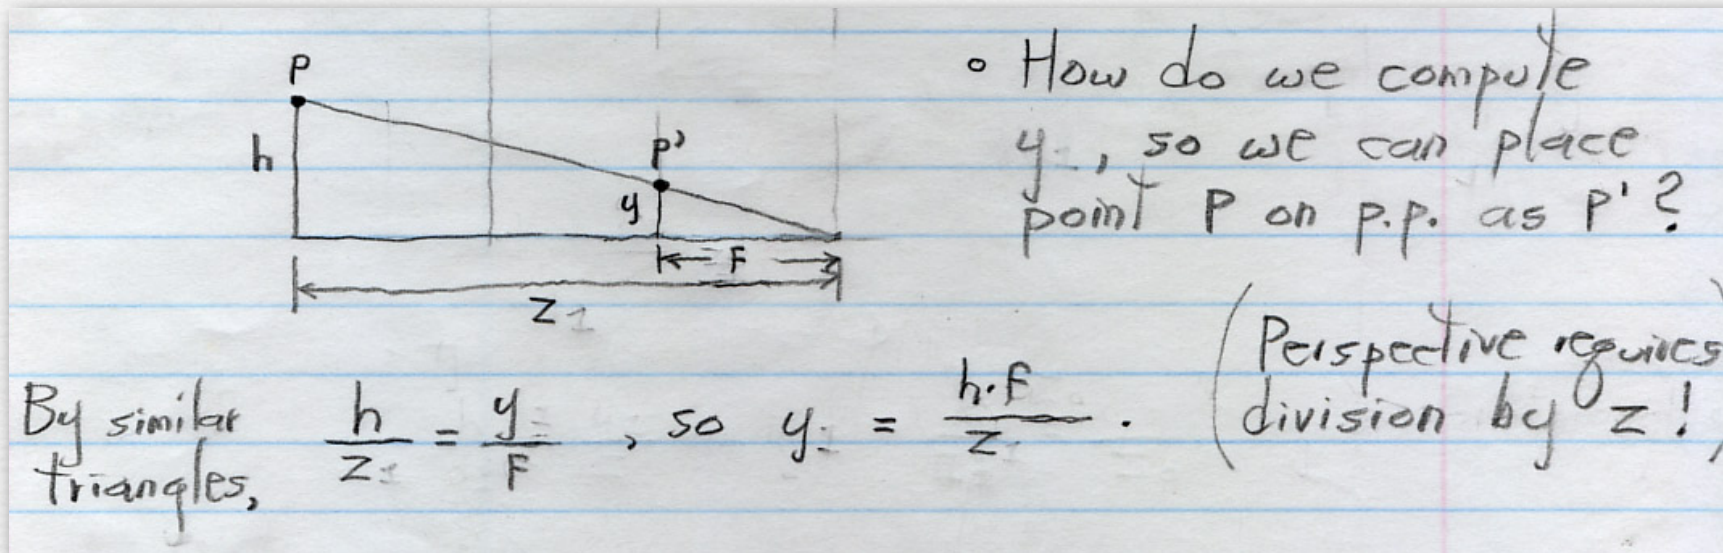 P
h
P'
y
F
Z₁
∘ How do we compute
y, so we can place
point P on p.p. as P'?
By similar triangles, h/z = y/F, so y = h·F/z.
(Perspective requires
division by z!)